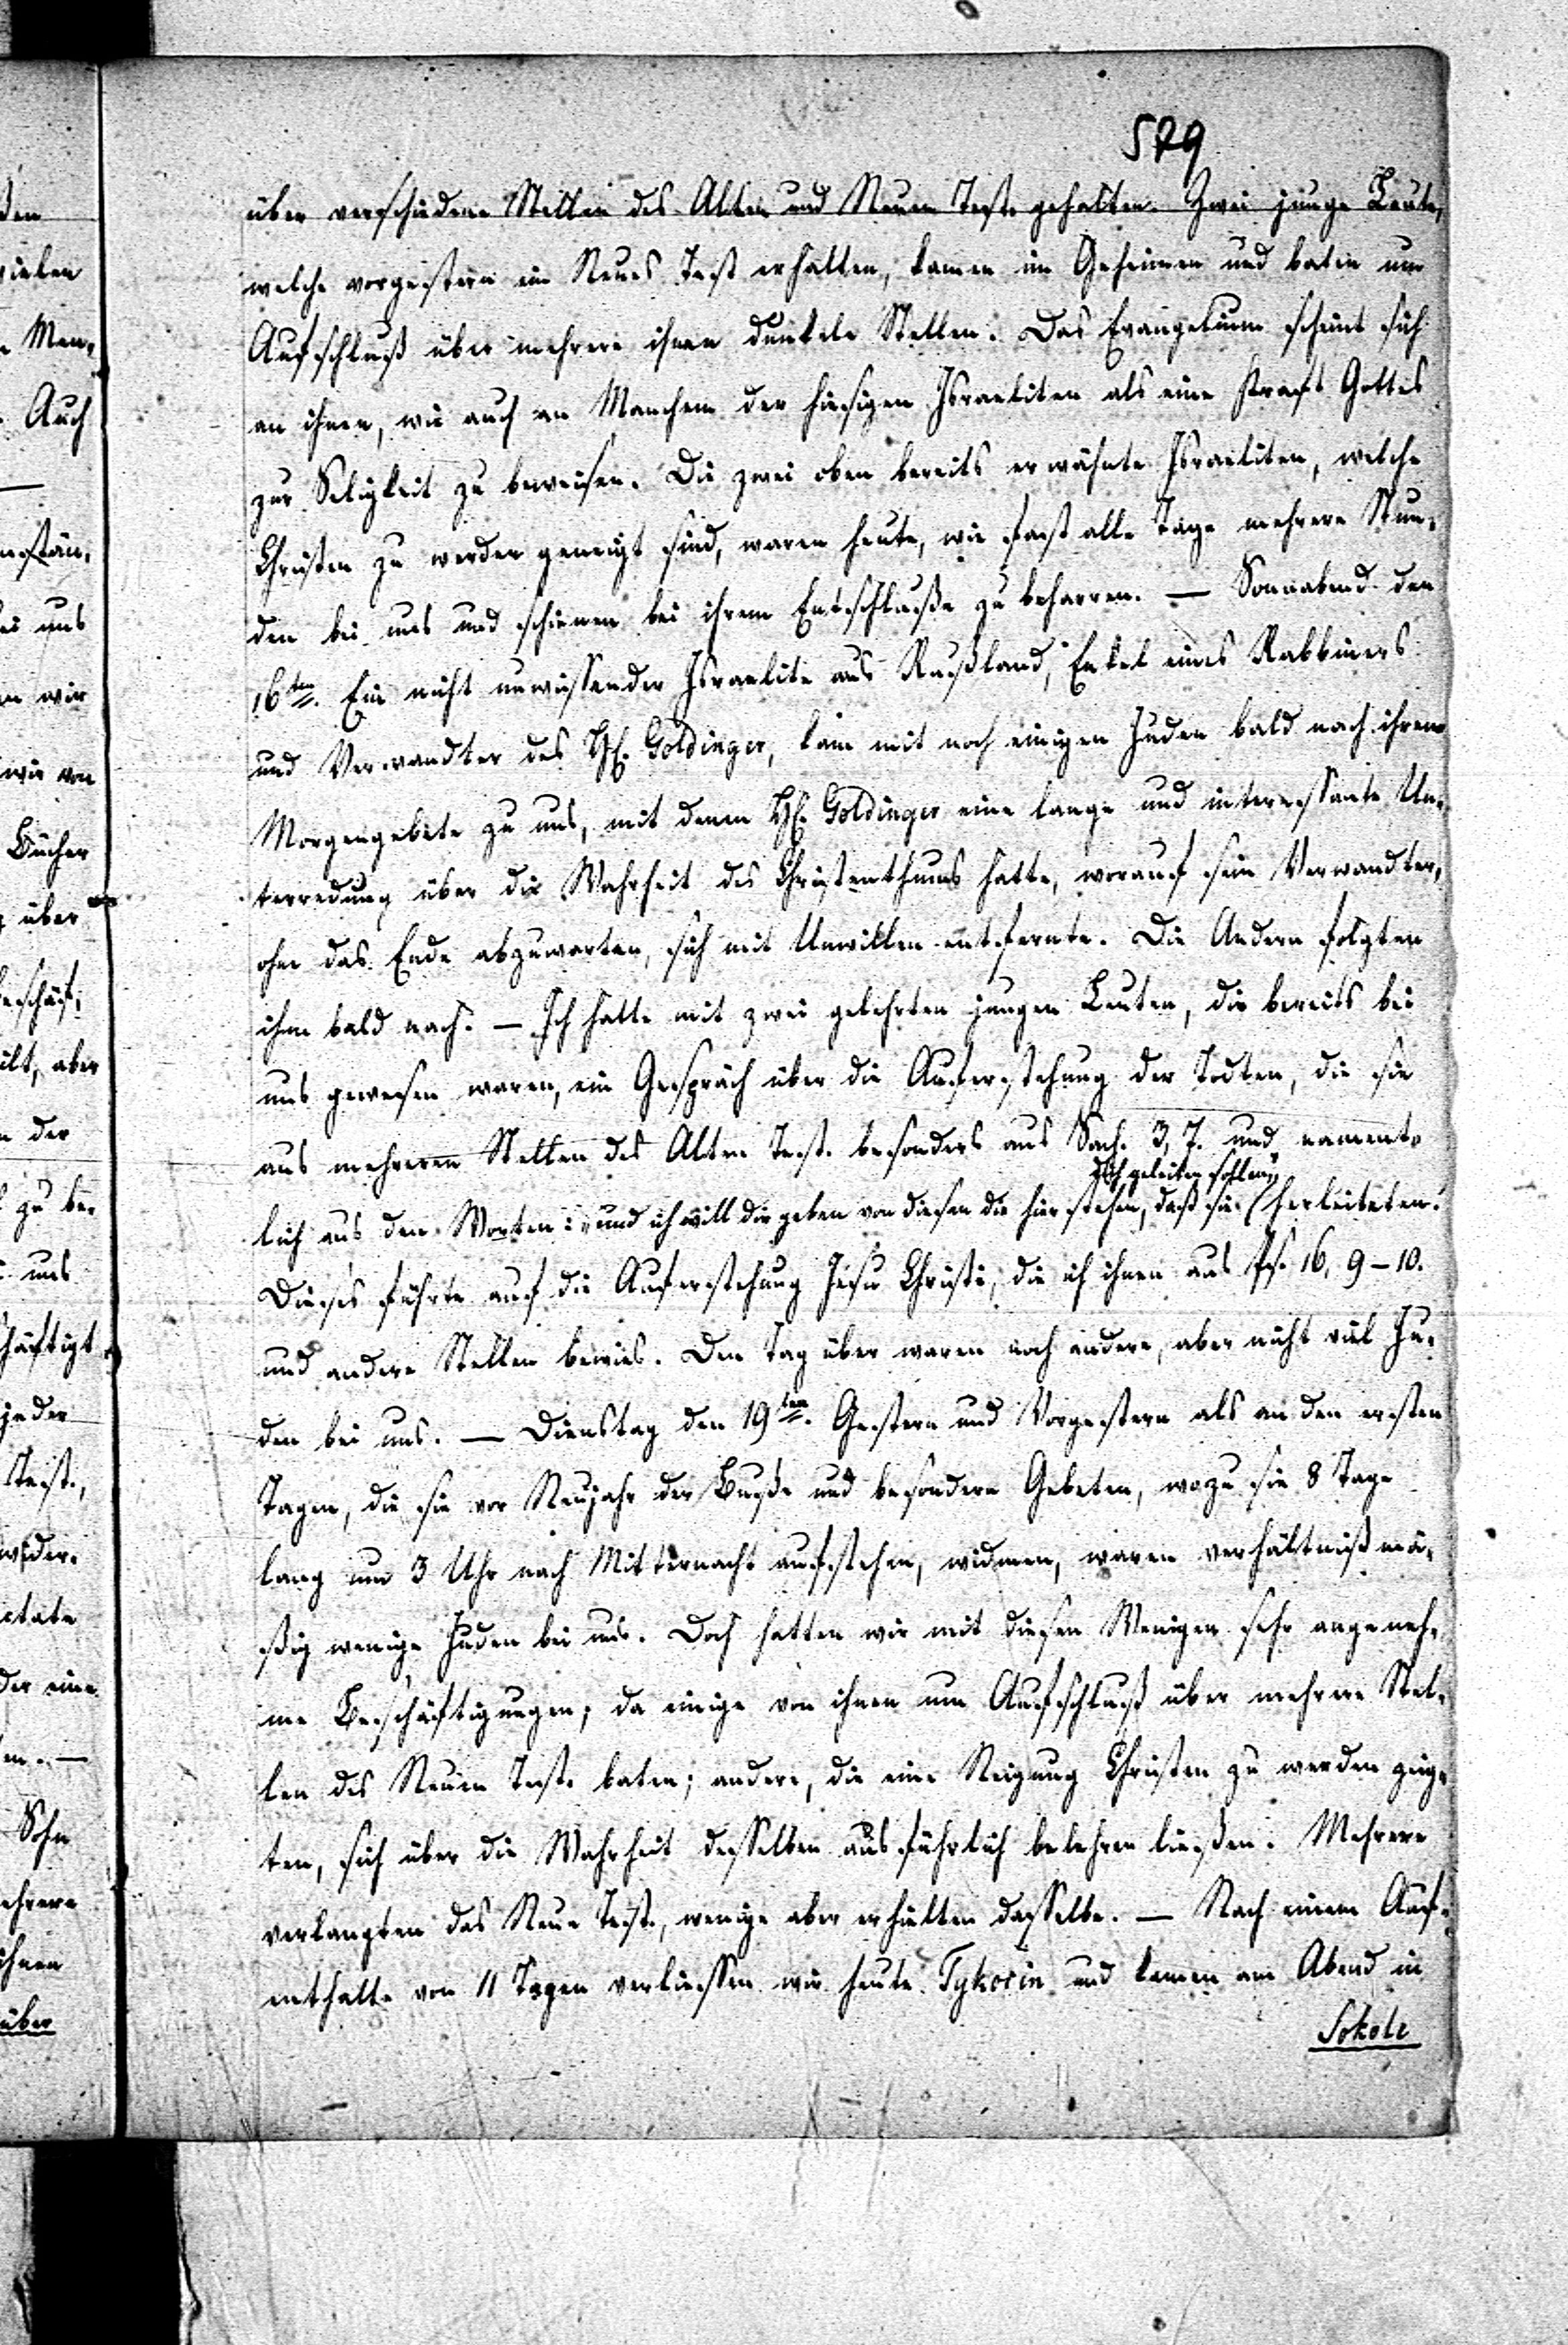 579
über verschiedene Stellen des Alten und Neuen Test. gehalten. Zwei junge Leute,
welche vorgestern ein Neues Test erhalten, kamen im Geheimen und baten um
Aufschluß über mehrere ihnen dunkele Stellen. Das Evangelium scheint sich
an ihnen, wie auch an Manchem der hiesigen Israeliten als eine Kraft Gottes
zur Seligkeit zu beweisen. Die zwei oben bereits erwähnte Israeliten, welche
Christen zu werden geneigt sind, waren heute, wie fast alle Tage mehrere Stun-
den bei uns und schienen bei ihrem Entschluße zu beharren. — Sonnabend den
16ten. Ein nicht unwissender Israelite aus Rußland, Enkel eines Rabbiners
und Verwandter des H. Goldinger, kam mit noch einigen Juden bald nach ihrem
Morgengebete zu uns, mit denen H. Goldinger eine lange und interessante Un-
terredung über die Wahrheit des Christenthums hatte, worauf sein Verwandter,
ohne das Ende abzuwarten, sich mit Unwillen entfernte. Die Andern folgten
ihm bald nach. — Ich hatte mit zwei gelehrten jungen Leuten, die bereits bei
uns gewesen waren, ein Gespräch über die Auferstehung der Todten, die sie
aus mehreren Stellen des Alten Test. besonders aus Sach. 3, 7. und nament-
dich geleiten sollen"
lich aus den Worten: „und ich will dir geben von diesen die hier stehen, daß sie herleiteten.
Dieses führte auf die Auferstehung Jesu Christi, die ich ihnen aus Ps. 16, 9-10.
und andere Stellen bewies. Den Tag über waren noch andere, aber nicht viel Ju-
den bei uns. — Dienstag den 19ten. Gestern und Vorgestern als an den ersten
Tagen, die sie vor Neujahr der Buße und besondern Gebeten, wozu sie 8 Tage
lang um 3 Uhr nach Mitternacht aufstehen, widmen, waren verhältnißmä-
ßig wenige Juden bei uns. Doch hatten wir mit diesen Wenigen sehr angeneh-
me Beschäftigungen, da einige von ihnen um Aufschluß über mehrere Stel-
len des Neuen Test. baten; andere, die eine Neigung Christen zu werden zeig-
ten, sich über die Wahrheit desselben ausführlich belehren ließen. Mehrere
verlangten das Neue Test., wenige aber erhielten dasselbe. — Nach einem Auf-
enthalte von 11 Tagen verliessen wir heute Tykocin und kamen am Abend in
Sokole